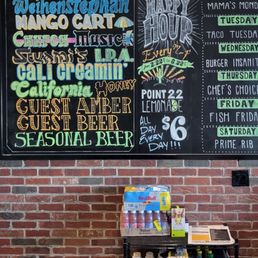 Weihenstephan
MANGO CART
Chron-music
I.P.A.
Cali Creamin'
California Honey
GUEST AMBER
GUEST BEER
SEASONAL BEER
HAPPY
HOUR
Every
POINT 22
LEMONADE
ALL
DAY
EVERY
DAY
$6
MAMA'S MOND
TUESDAY
TACO TUESDA
WEDNESDAY
BURGER INSANIT
THURSDAY
CHEF'S CHOICE
FRIDAY
FISH FRIDAY
SATURDAY
PRIME RIB